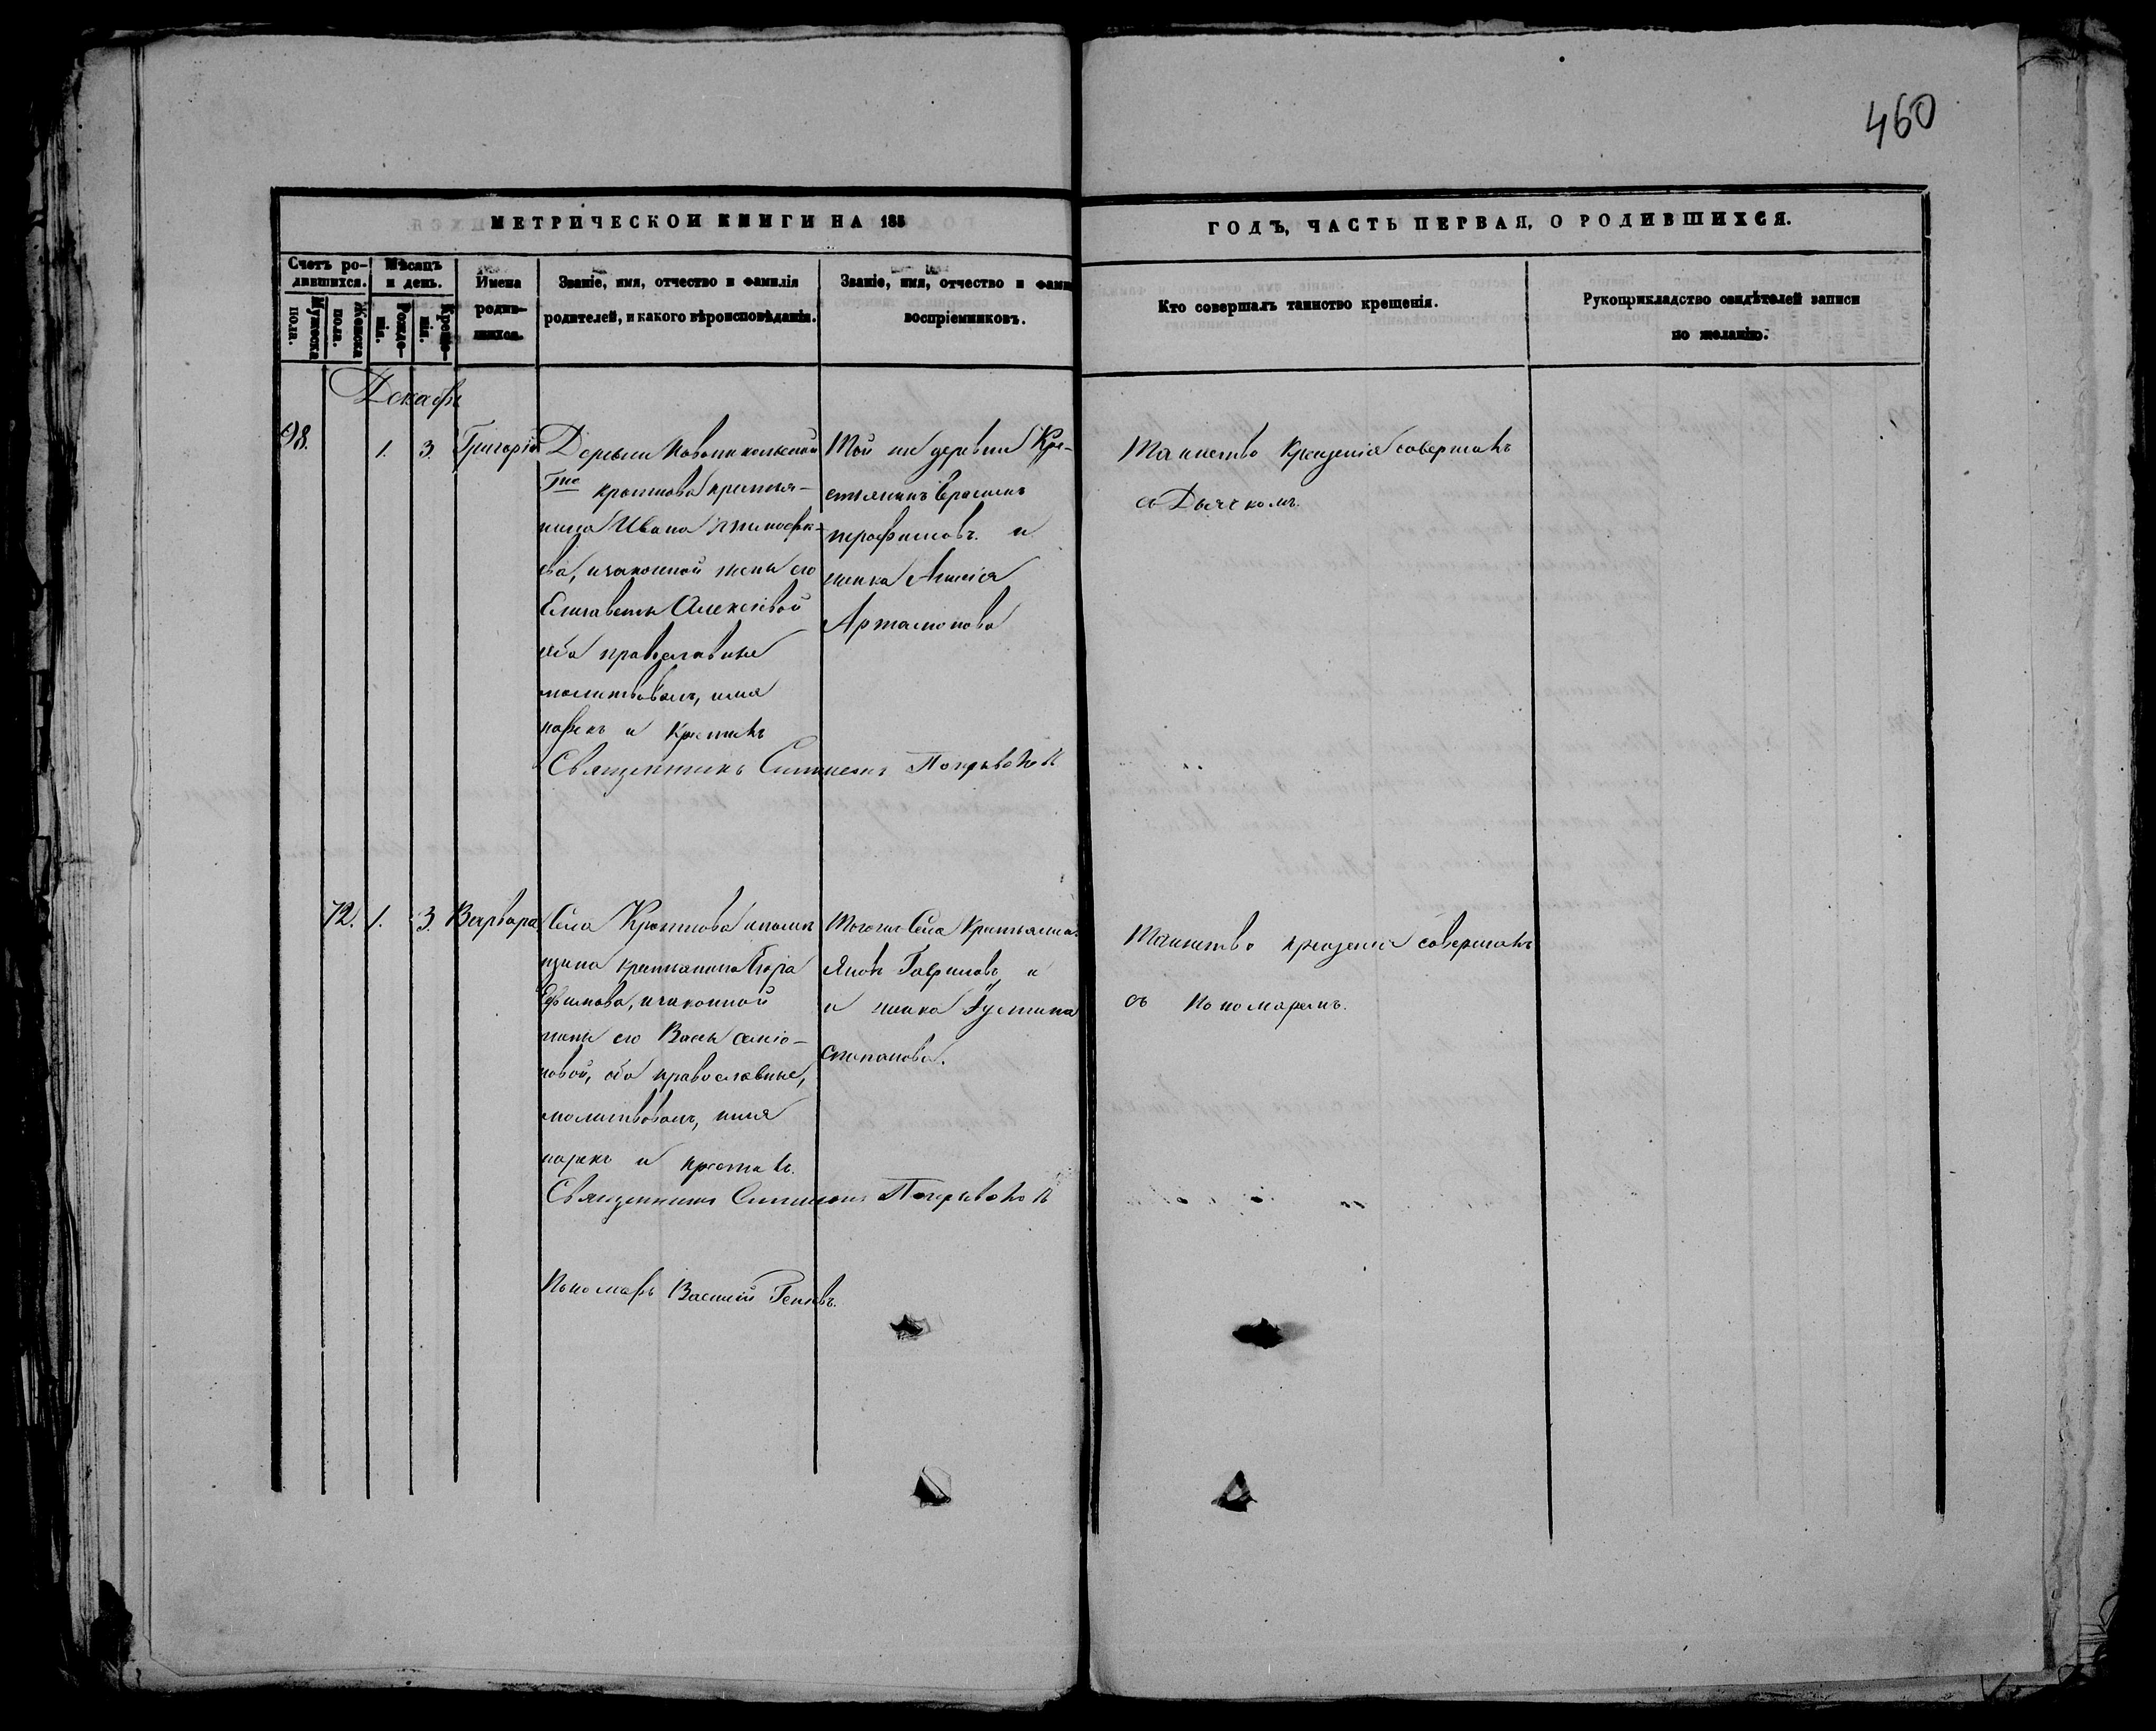 460
МЕТРИЧЕСКОЙ КНИГИ НА 185
ГОДЪ, ЧАСТЬ ПЕРВАЯ, О РОДИВШИХСЯ.
Счетъ ро-
дившихся.
Мужеска
пола.
Женска
пола.
Мѣсяцъ
и день.
Рожде-
нія.
Креще-
нія.
Имена
родив-
шихся.
Званіе, имя, отчество и фамилія
родителей, и какого вѣроисповѣданія.
Званіе, имя, отчество и фами
воспріемниковъ.
Кто совершалъ таинство крещенія.
Рукоприкладство свидѣтелей записи
по желанію.
Декабрь
98.
1.
3.
Григорій
Деревни Новоникольской
крестья-
нина Ивана Тимофѣе-
ва, и законной жены его
Елизаветы Алексѣевой
оба православные
молитвовалъ, имя
нарекъ и крестилъ
Священникъ Симеонъ
Той же деревни Кре-
стьянинъ Герасимъ
Трофимовъ и
Артамонова
Таинство Крещенія совершалъ
съ Дьячкомъ.
72.
1.
3.
Варвара
Села
крестьянина Егора
Ефимова, и законной
жены его Вассы Семіо-
новой, оба православные,
молитвовалъ, имя
нарекъ и крестилъ.
Священникъ Симеонъ
Пономарь Василій
Тогоже Села Крестьянинъ
Яковъ Гавриловъ и
и Іустина
Степанова.
Таинство крещенія совершалъ
съ Пономаремъ.